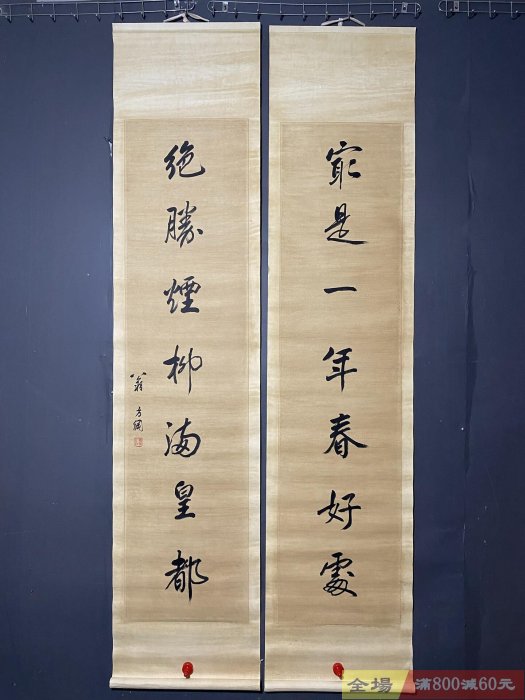 最是一年春好處
絕勝煙柳滿皇都
翁方綱
全場 滿800減60元